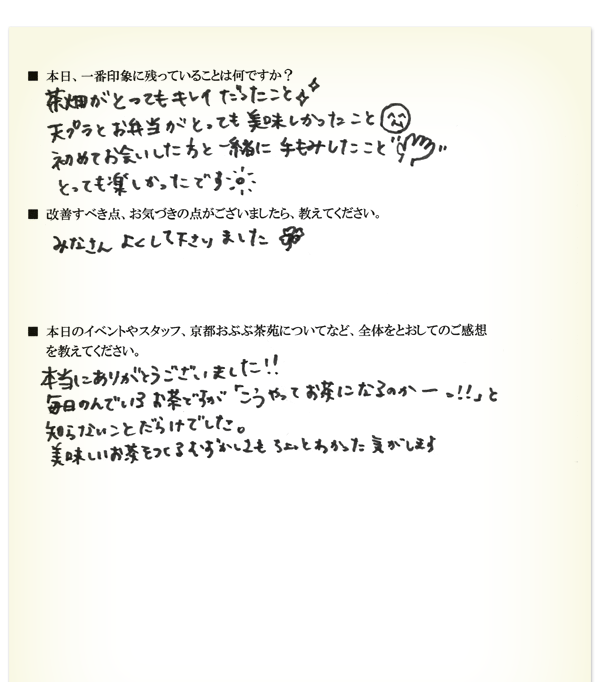 ■ 本日、一番印象に残っていることは何ですか？
茶畑がとってもキレイだったこと
天プラとお弁当がとっても美味しかったこと
初めてお会いした方と一緒に手もみしたこと
とっても楽しかったです
■ 改善すべき点、お気づきの点がございましたら、教えてください。
みなさんよくして下さりました
■ 本日のイベントやスタッフ、京都おぶぶ茶苑についてなど、全体をとおしてのご感想
を教えてください。
本当にありがとうございました!!
毎日のんでいるお茶ですが「こうやってお茶になるのかーっ!!」と
知らないことだらけでした。
美味しいお茶をつくるむずかしさもちょっとわかった気がします